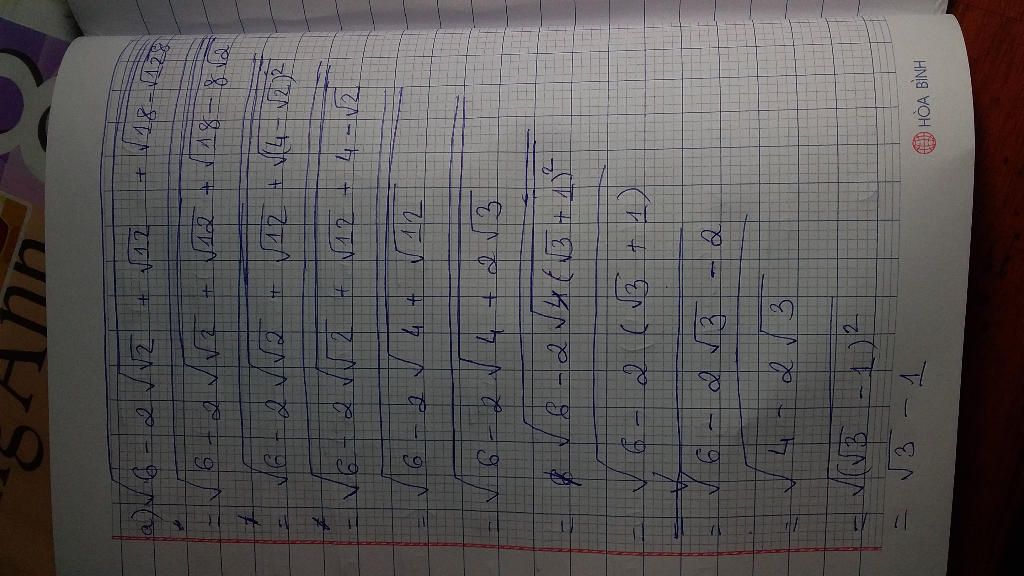 a) √(6 - 2√(√2 + √12 + √(18 - √128)))
= √(6 - 2√(√2 + √12 + √(18 - 8√2)))
= √(6 - 2√(√2 + √12 + √((4 - √2)²)))
= √(6 - 2√(√2 + √12 + 4 - √2))
= √(6 - 2√(4 + √12))
= √(6 - 2√(4 + 2√3))
= √(6 - 2√((√3 + 1)²))
= √(6 - 2(√3 + 1))
= √(6 - 2√3 - 2)
= √(4 - 2√3)
= √((√3 - 1)²)
= √3 - 1
HÒA BÌNH